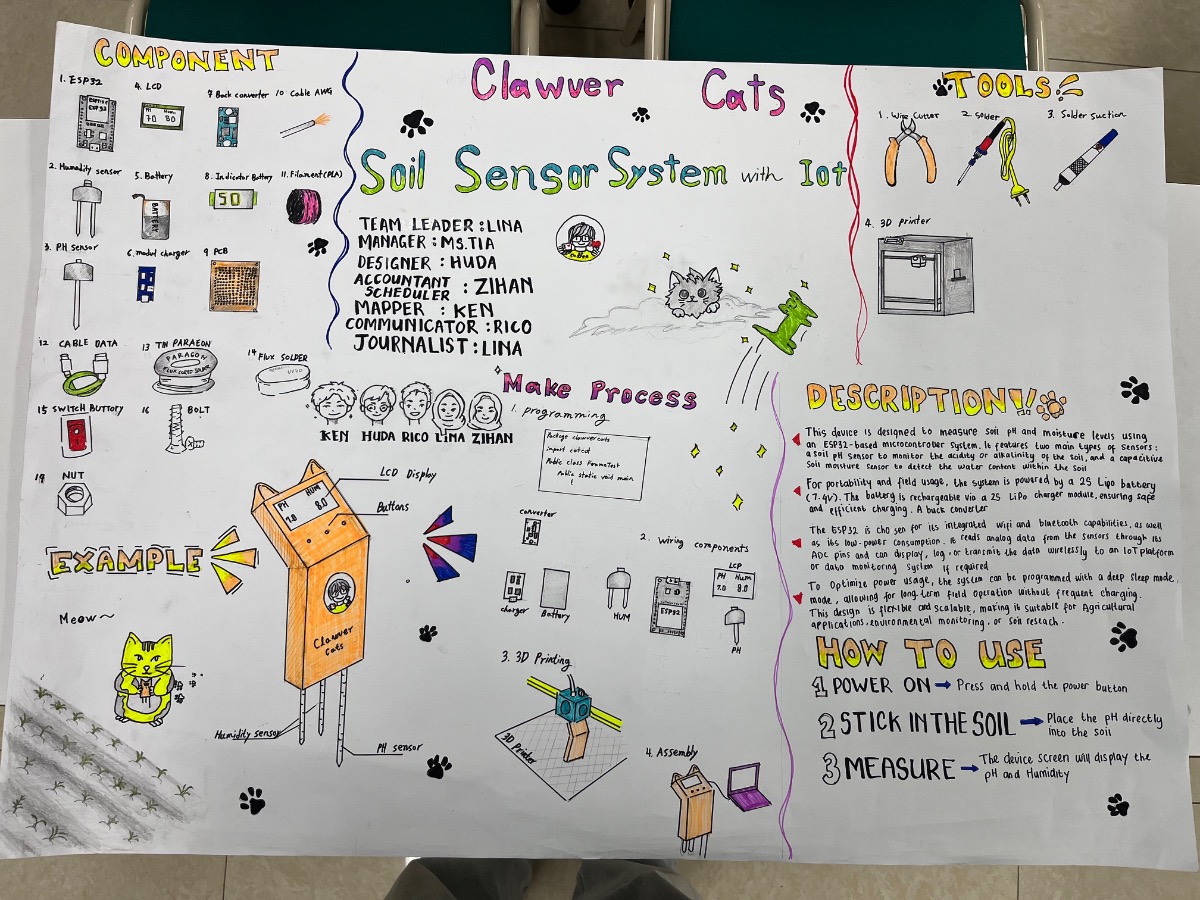 COMPONENT
1. ESP32
ESP32
4. LCD
PH HUM
70 80
7 Back converter
10 Cable AWG
2. Humadity sensor
5. Battery
BATTERY
8. Indicator Battery
50
11. Filament (PLA)
3. PH sensor
6. modul charger
9 PCB
12 CABLE DATA
13 TIN PARAEON
PARAGON
FLUX CORED SOLDER
14 FLUX SOLDER
15 SWITCH BUTTORY
16 BOLT
NUT
Clawver Cats
Soil Sensor System with Iot
TEAM LEADER : LINA
MANAGER : MS.TIA
DESIGNER : HUDA
ACCOUNTANT
SCHEDULER : ZIHAN
MAPPER : KEN
COMMUNICATOR : RICO
JOURNALIST : LINA
KEN HUDA RICO LINA ZIHAN
TOOLS!
1. Wire Cutter
2. Solder
3. Solder suction
4. 3D printer
EXAMPLE
Meow~
LCD Display
Buttons
PH HUM
7.0 8.0
Clawver
Cats
Humadity sensor
PH sensor
Make Process
1. programming
Package clawvercats
import
Public class
Public static void main
2. wiring components
converter
charger
Battery
HUM
ESP32
LCP
PH HUM
7.0 8.0
PH
3. 3D Printing
3D Printer
4. Assembly
DESCRIPTION!
This device is designed to measure soil pH and moisture levels using
an ESP32-based microcontroller system. It features two main types of sensors:
a soil pH sensor to monitor the acidity or alkalinity of the soil, and a capacitive
Soil moisture sensor to detect the water content within the soil
For portability and field usage, the system is powered by a 2S Lipo battery
(7.4V). The battery is rechargeable via a 2S LiPo charger module, ensuring safe
and efficient charging. A back converter
The ESP32 is cho sen for its integrated wifi and bluetooth capabilities, as well
as its low-power consumption. It reads analog data from the sensors through its
ADC pins and can display, log, or transmit the data wirelessly to an IoT platform
or data monitoring system if required
To Optimize power usage, the system can be programmed with a deep sleep mode,
mode, allowing for long-term field operation without frequent charging.
This design is flexible and scalable, making it suitable for Agricultural
applications, environmental monitoring, or Soil reseach.
HOW TO USE
1 POWER ON → Press and hold the power button
2 STICK IN THE SOIL → Place the pH directly
into the soil
3 MEASURE → The device screen will display the
pH and Humidity